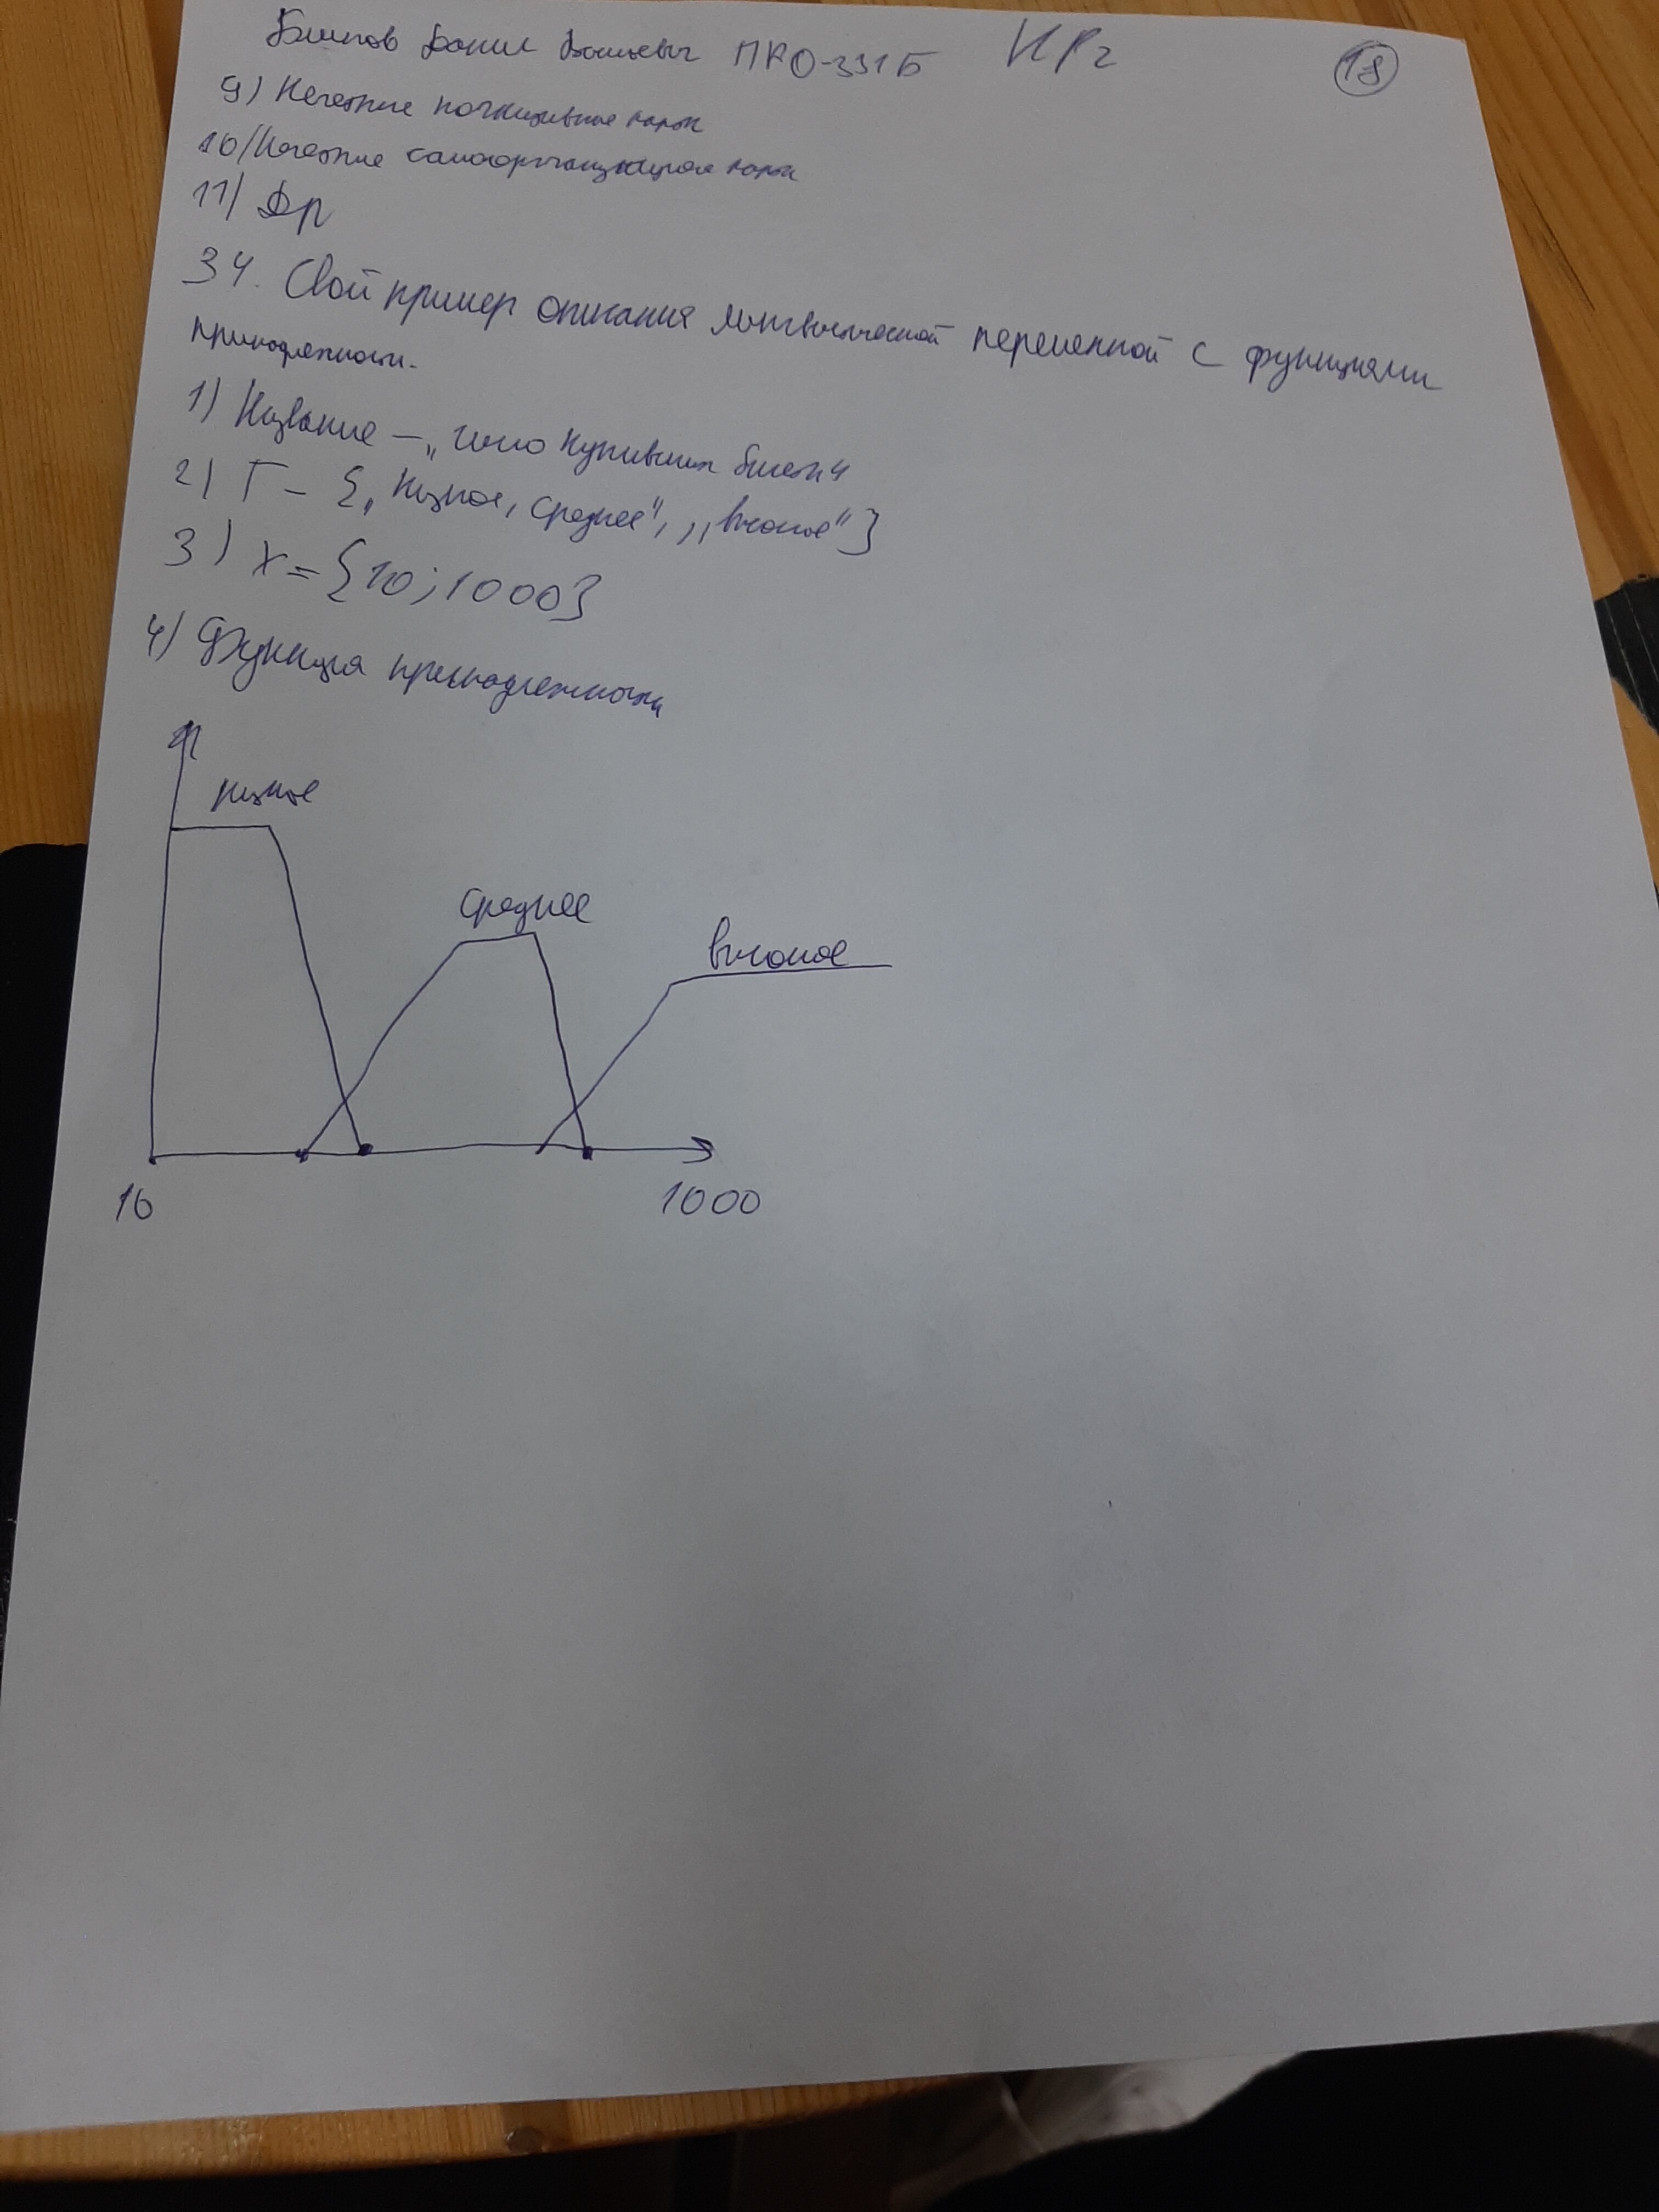 ПРО-331Б КР2 18
9) Нечеткие когнитивные карты
10) Нечеткие самоорганизующиеся карты
11) Др
34. Свой пример описания лингвистической переменной с функциями
принадлежности.
1) Название – „число купивших билеты"
2) T – {„Низкое, среднее", „высокое"}
3) X = {10; 1000}
4) Функция принадлежности
низкое
среднее
высокое
10 1000